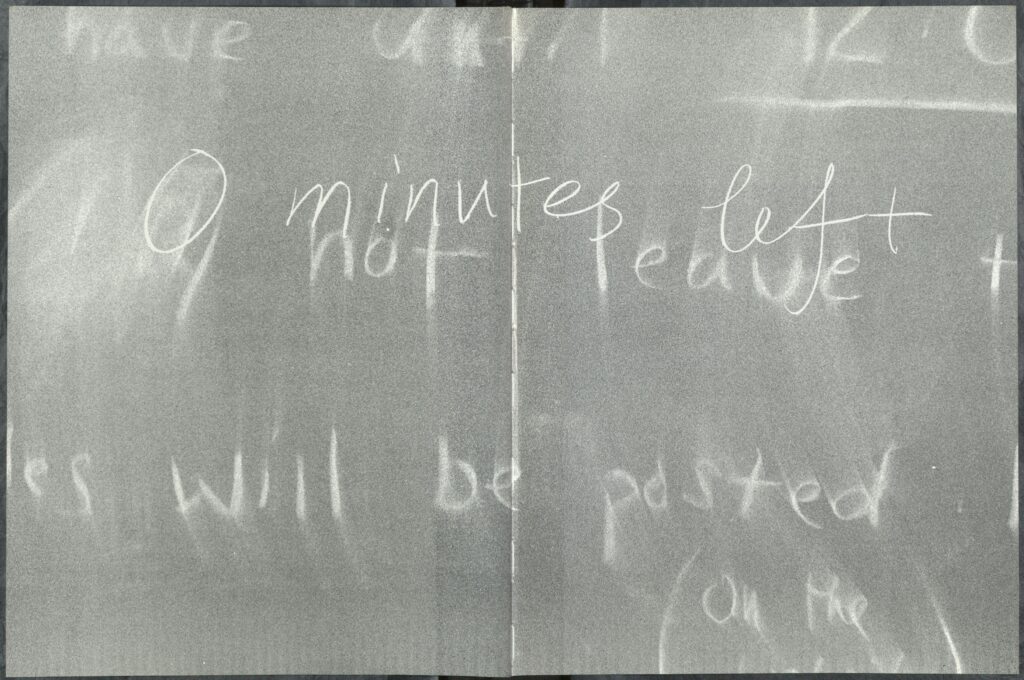 have until 12:0
0 minutes left
may not leave t
es will be posted
(on the